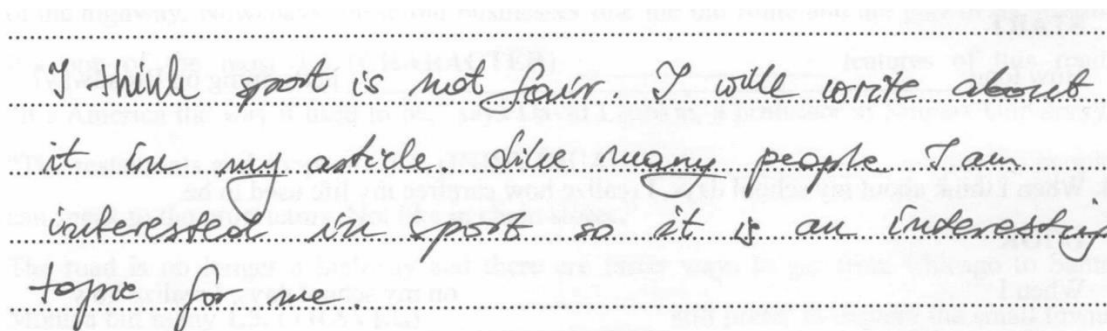 I think sport is not fair. I will write about
it in my article. Like many people I am
interested in sport so it is an interesting
topic for me